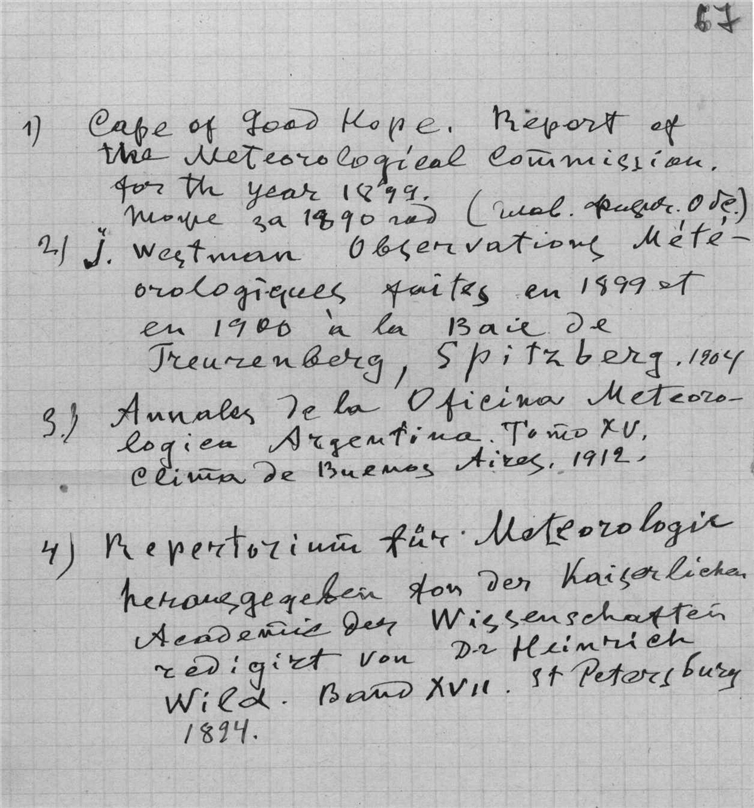 67
1) Cape of Good Hope. Report of
the Meteorological Commission.
for th year 1899.
тоже за 1890 год (глав. физич. Обс.)
2) J. Westman Observations Mété-
orologiques faites en 1899 et
en 1900 à la Baie de
Treurenberg, Spitzberg. 1904
3.) Annales de la Oficina Meteoro-
logica Argentina. Tomo XV.
Clima de Buenos Aires. 1912.
4) Repertorium für Meteorologie
herausgegeben fon der Kaiserlichen
Academie der Wissenschaften
redigirt von Dr Heinrich
Wild. Band XVII. St Petersburg
1894.